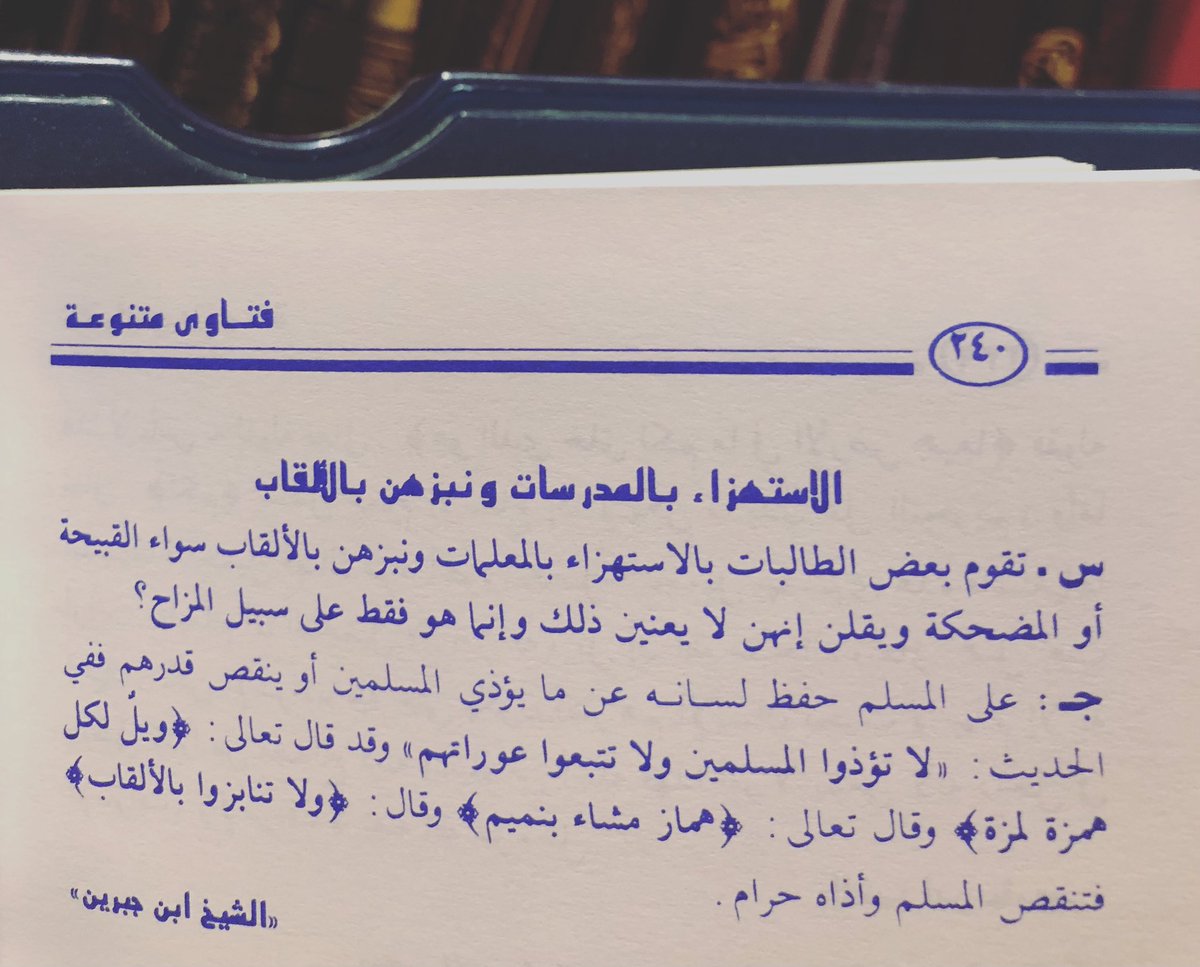 فتاوى متنوعة
٢٤٠
الاستهزاء بالمدرسات ونبزهن بالألقاب
س . تقوم بعض الطالبات بالاستهزاء بالمعلمات ونبزهن بالألقاب سواء القبيحة
أو المضحكة ويقلن إنهن لا يعنين ذلك وإنما هو فقط على سبيل المزاح؟
جـ : على المسلم حفظ لسانه عن ما يؤذي المسلمين أو ينقص قدرهم ففي
الحديث : «لا تؤذوا المسلمين ولا تتبعوا عوراتهم» وقد قال تعالى : ﴿ويلٌ لكل
همزة لمزة﴾ وقال تعالى : ﴿هماز مشاء بنميم﴾ وقال : ﴿ولا تنابزوا بالألقاب﴾
فتنقص المسلم وأذاه حرام .
«الشيخ ابن جبرين»